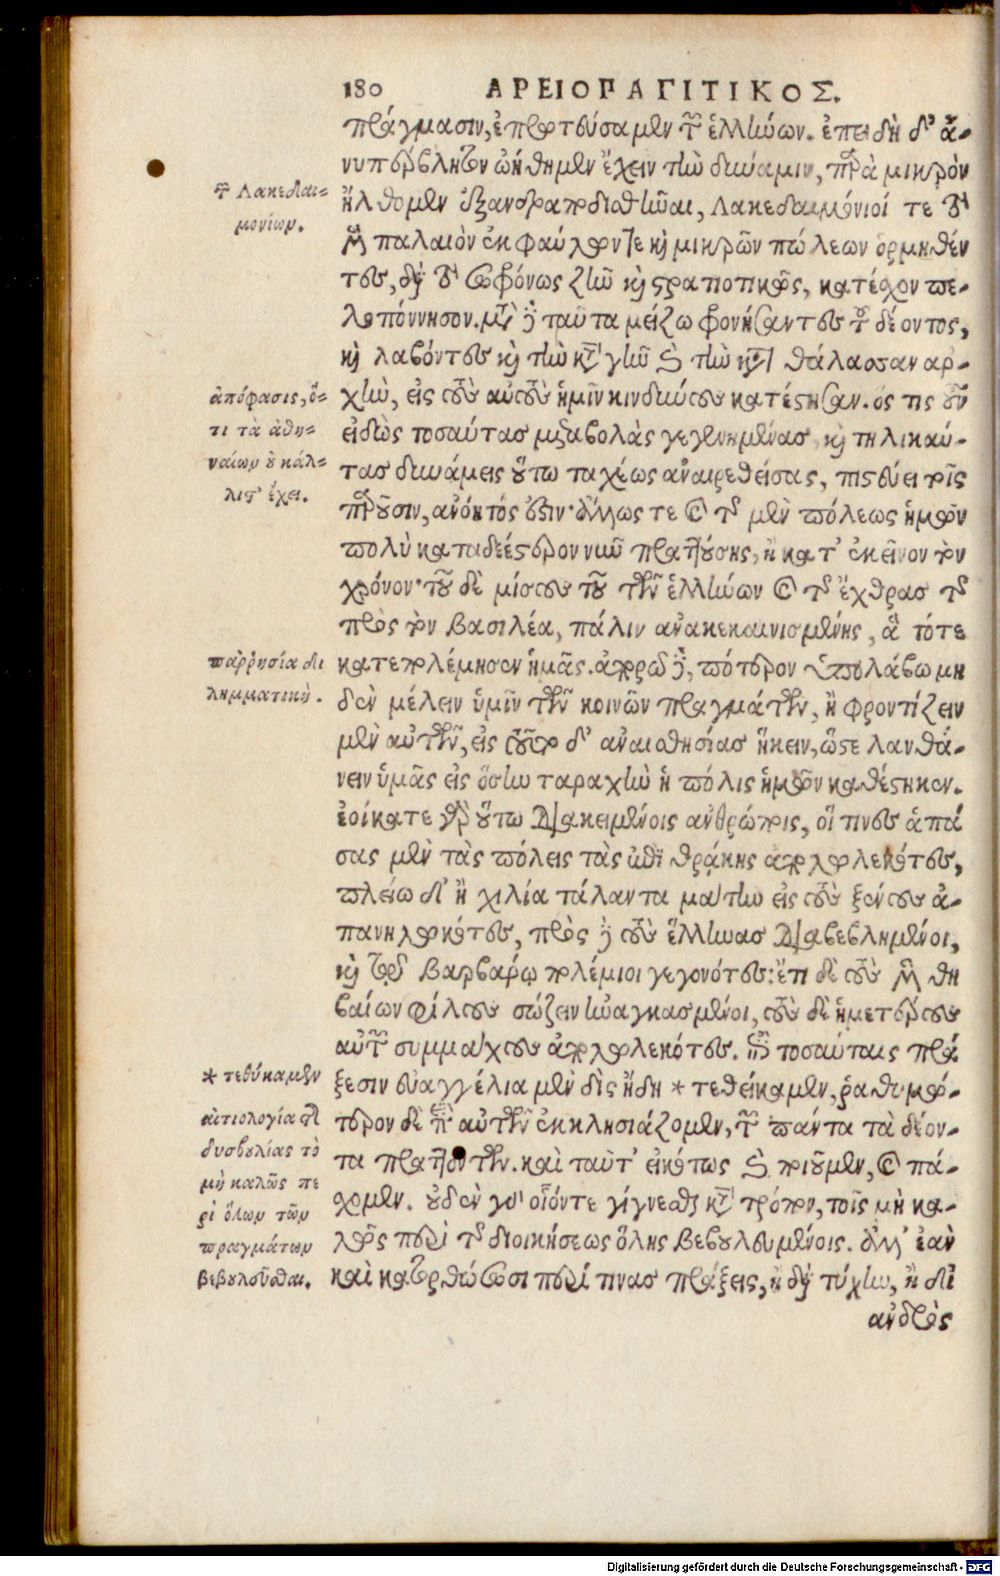 180 ΑΡΕΙΟΠΑΓΙΤΙΚΟΣ.
πράγμασιν, ἐπρωτεύσαμεν τῶν ἑλλήνων. ἐπειδὴ δ' ἀ-
νυπέρβλητον ᾠήθημεν ἔχειν τὴν δύναμιν, παρὰ μικρὸν
ἤλθομεν ἐξανδραποδισθῆναι, Λακεδαιμόνιοί τε τὸ
μὲν παλαιὸν ἐκ φαύλων τε καὶ μικρῶν πόλεων ὁρμηθέν
τες, διὰ τὸ σωφρόνως ζῆν καὶ στρατιωτικῶς, κατέσχον πε-
λοπόννησον. μετὰ δὲ ταῦτα μεῖζω φρονήσαντες τοῦ δέοντος,
καὶ λαβόντες καὶ τὴν κατὰ γῆν καὶ τὴν κατὰ θάλασσαν ἀρ-
χὴν, εἰς τοὺς αὐτοὺς ἡμῖν κινδύνους κατέστησαν. ὅς τις οὖν
εἰδὼς τοσαύτας μεταβολὰς γεγενημένας, καὶ τηλικαύ-
τας δυνάμεις οὕτω ταχέως ἀναιρεθείσας, πιστεύει τοῖς
παροῦσιν, ἀνόητός ἐστιν· ἄλλως τε καὶ τῆς μὲν πόλεως ἡμῶν
πολὺ καταδεέστερον νῦν πραττούσης, ἢ κατ' ἐκεῖνον τὸν
χρόνον· τοῦ δὲ μίσους τοῦ τῶν ἑλλήνων καὶ τῆς ἔχθρας τῆς
πρὸς τὸν βασιλέα, πάλιν ἀνακεκαινισμένης, ἃ τότε
κατεπολέμησεν ἡμᾶς. ἀπορῶ δὲ, πότερον ὑπολάβω μη
δὲν μέλειν ὑμῖν τῶν κοινῶν πραγμάτων, ἢ φροντίζειν
μὲν αὐτῶν, εἰς τοῦτο δ' ἀναισθησίας ἥκειν, ὥστε λανθά-
νειν ὑμᾶς εἰς ὅσην ταραχὴν ἡ πόλις ἡμῶν καθέστηκεν.
ἐοίκατε γὰρ οὕτω διακειμένοις ἀνθρώποις, οἵ τινες ἁπά
σας μὲν τὰς πόλεις τὰς ἐπὶ θρᾴκης ἀπολωλεκότες,
πλείω δ' ἢ χίλια τάλαντα μάτην εἰς τοὺς ξένους ἀ-
πανηλωκότες, πρὸς δὲ τοὺς ἕλληνας διαβεβλημένοι,
καὶ τῷ βαρβάρῳ πολέμιοι γεγονότες· ἔτι δὲ τοὺς μὲν θη
βαίων φίλους σώζειν ἠναγκασμένοι, τοὺς δὲ ἡμετέρους
αὐτῶν συμμάχους ἀπολωλεκότες. ἐπὶ τοσαύταις πρά
ξεσιν εὐαγγέλια μὲν δὶς ἤδη * τεθείκαμεν, ῥαθυμό-
τερον δὲ περὶ αὐτῶν ἐκκλησιάζομεν, τῶν πάντα τὰ δέον-
τα πραττόντων. καὶ ταῦτ' εἰκότως καὶ ποιοῦμεν, καὶ πά-
σχομεν. οὐδὲν γὰρ οἷόντε γίγνεσθαι κατὰ τρόπον, τοῖς μὴ κα-
λῶς περὶ τῆς διοικήσεως ὅλης βεβουλευμένοις. ἀλλ' ἐὰν
καὶ κατορθώσωσι περί τινας πράξεις, ἢ διὰ τύχην, ἢ δι
ἀνδρὸς
τῶν Λακεδαι-
μονίων.
ἀπόφασις, ὅ-
τι τὰ ἀθη-
ναίων οὐ κάλ-
λιστ' ἔχει.
παῤῥησία δι
λημματική.
* τεθύκαμεν
αἰτιολογία τῆς
δυσβουλίας τὸ
μὴ καλῶς πε
ρὶ ὅλων τῶν
πραγμάτων
βεβουλεῦσθαι.
Digitalisierung gefördert durch die Deutsche Forschungsgemeinschaft - DFG